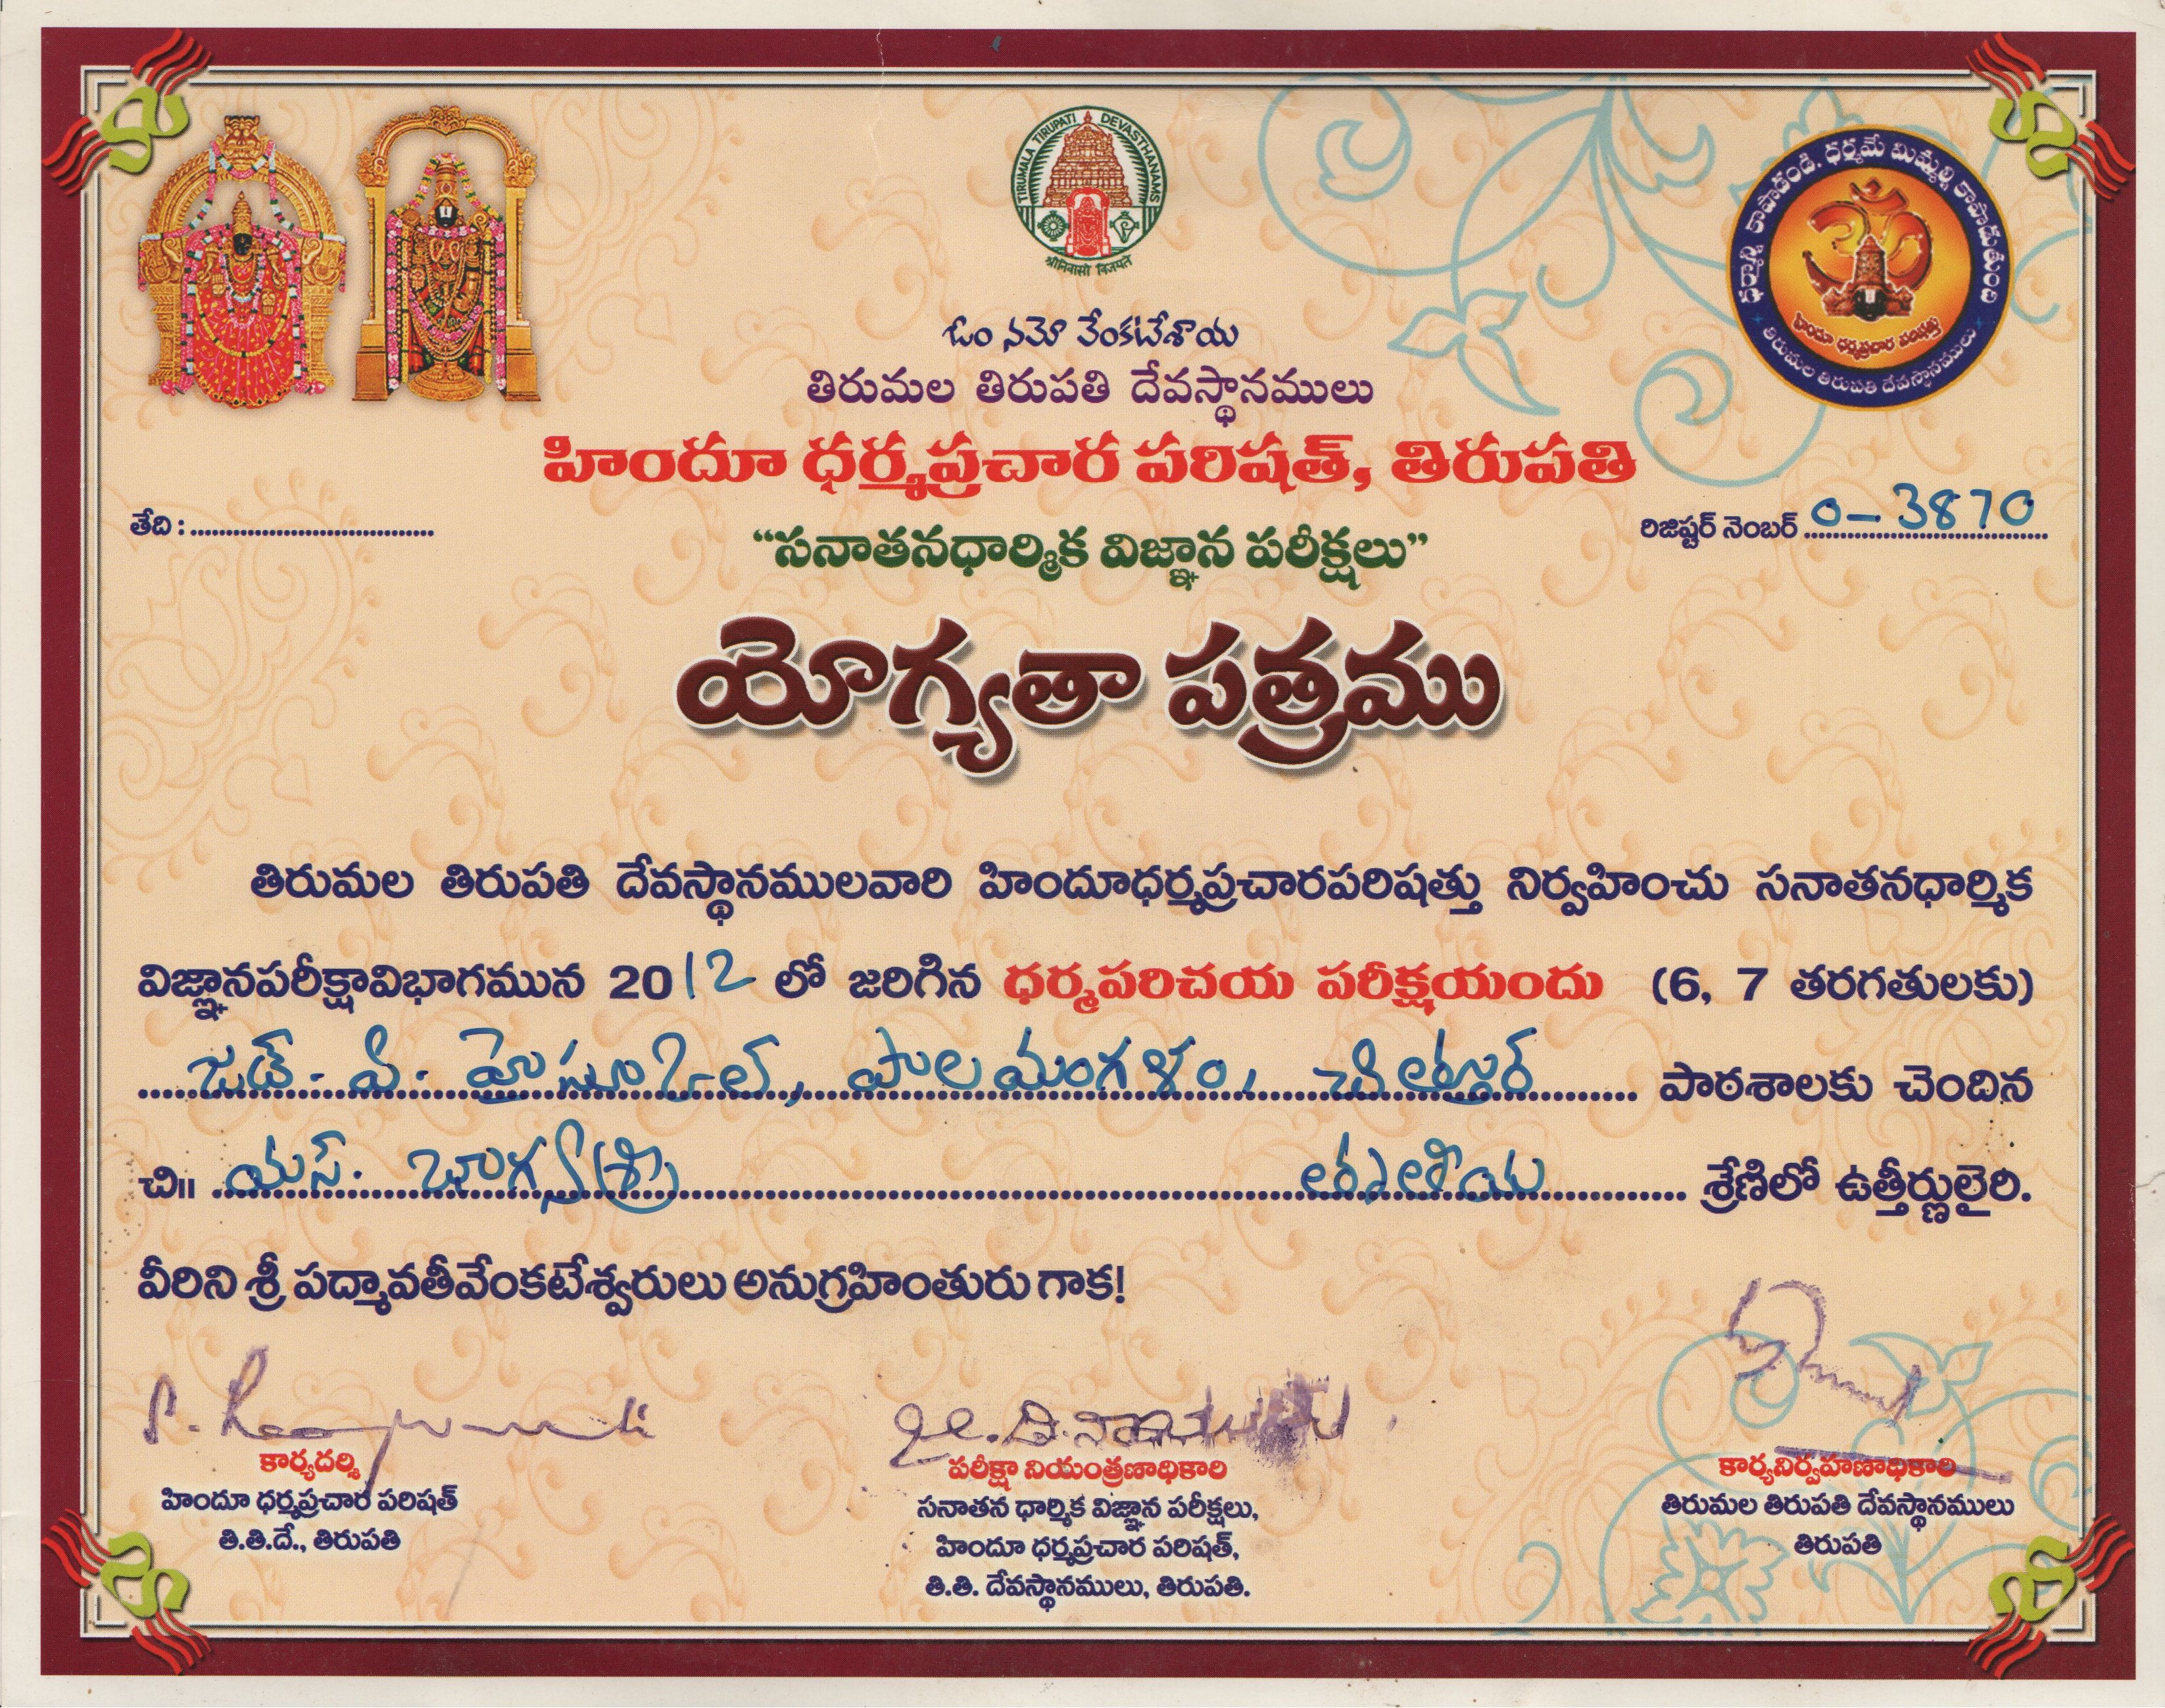 TIRUMALA TIRUPATI DEVASTHANAMS
श्रीनिवासो विजयते
ధర్మాన్ని కాపాడండి. ధర్మమే మిమ్మల్ని కాపాడుతుంది
హిందూ ధర్మప్రచార పరిషత్తు
తిరుమల తిరుపతి దేవస్థానములు
ఓం నమో వేంకటేశాయ
తిరుమల తిరుపతి దేవస్థానములు
హిందూ ధర్మప్రచార పరిషత్, తిరుపతి
తేది : ..................................
రిజిష్టర్ నెంబర్ 0-3870
“సనాతనధార్మిక విజ్ఞాన పరీక్షలు”
యోగ్యతా పత్రము
తిరుమల తిరుపతి దేవస్థానములవారి హిందూధర్మప్రచారపరిషత్తు నిర్వహించు సనాతనధార్మిక
విజ్ఞానపరీక్షావిభాగమున 2012 లో జరిగిన ధర్మపరిచయ పరీక్షయందు (6, 7 తరగతులకు)
జడ్. పి. హైస్కూల్, పాలమంగళం, చిత్తూర్ పాఠశాలకు చెందిన
చి॥ యస్. భాగ్యశ్రీ తృతీయ శ్రేణిలో ఉత్తీర్ణులైరి.
వీరిని శ్రీ పద్మావతీవేంకటేశ్వరులు అనుగ్రహింతురు గాక!
కార్యదర్శి
హిందూ ధర్మప్రచార పరిషత్
తి.తి.దే., తిరుపతి
పరీక్షా నియంత్రణాధికారి
సనాతన ధార్మిక విజ్ఞాన పరీక్షలు,
హిందూ ధర్మప్రచార పరిషత్,
తి.తి. దేవస్థానములు, తిరుపతి.
కార్యనిర్వహణాధికారి
తిరుమల తిరుపతి దేవస్థానములు
తిరుపతి